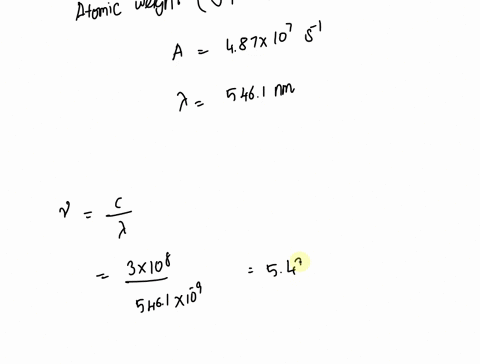 Atomic weight
A = 4.87×10⁷ s⁻¹
λ = 546.1 nm
ν = c/λ
= 3×10⁸ / 546.1×10⁻⁹ = 5.4